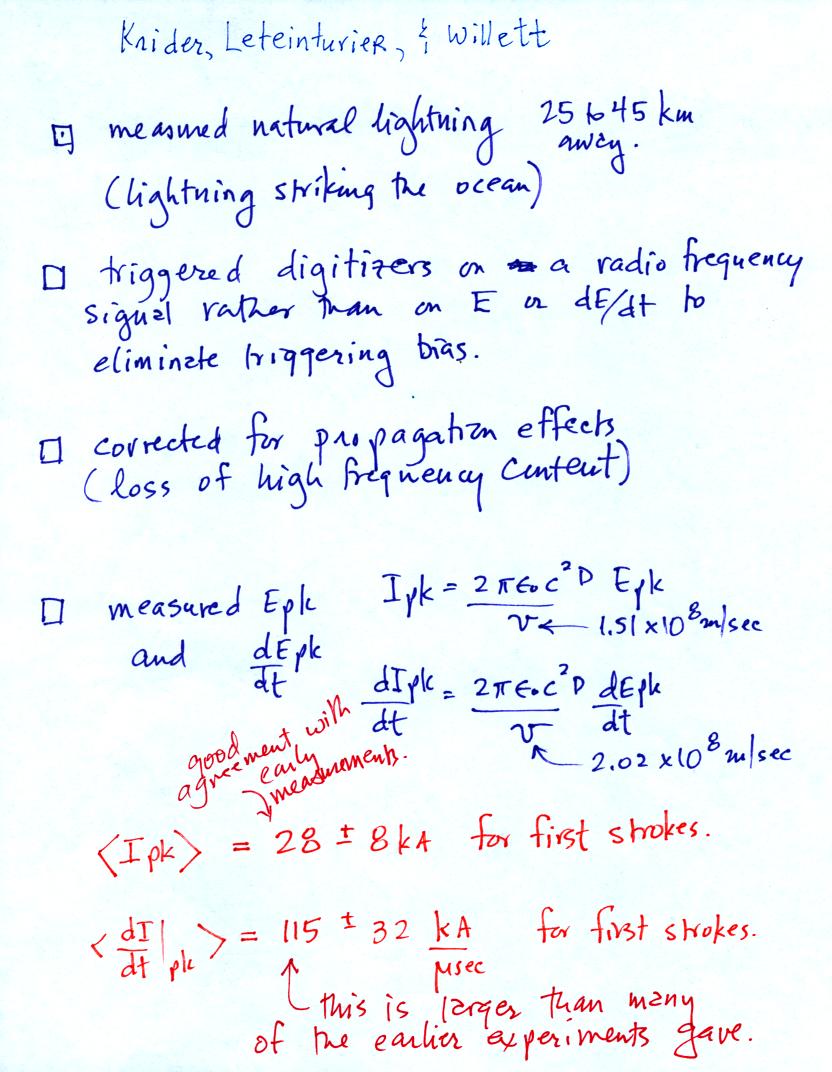 Knider, Leteinturier, & Willett
measured natural lightning 25 to 45 km
away.
(lightning striking the ocean)
triggered digitizers on a radio frequency
signal rather than on E or dE/dt to
eliminate triggering bias.
corrected for propagation effects
(loss of high frequency content)
measured Epk Ipk = 2πε₀c²D / v Epk
v ← 1.51 x10⁸ m/sec
and dEpk/dt
dIpk/dt = 2πε₀c²D / v dEpk/dt
v ← 2.02 x10⁸ m/sec
good
agreement with
early
measurements.
<Ipk> = 28 ± 8 kA for first strokes.
<dI/dt|pk> = 115 ± 32 kA/μsec for first strokes.
this is larger than many
of the earlier experiments gave.